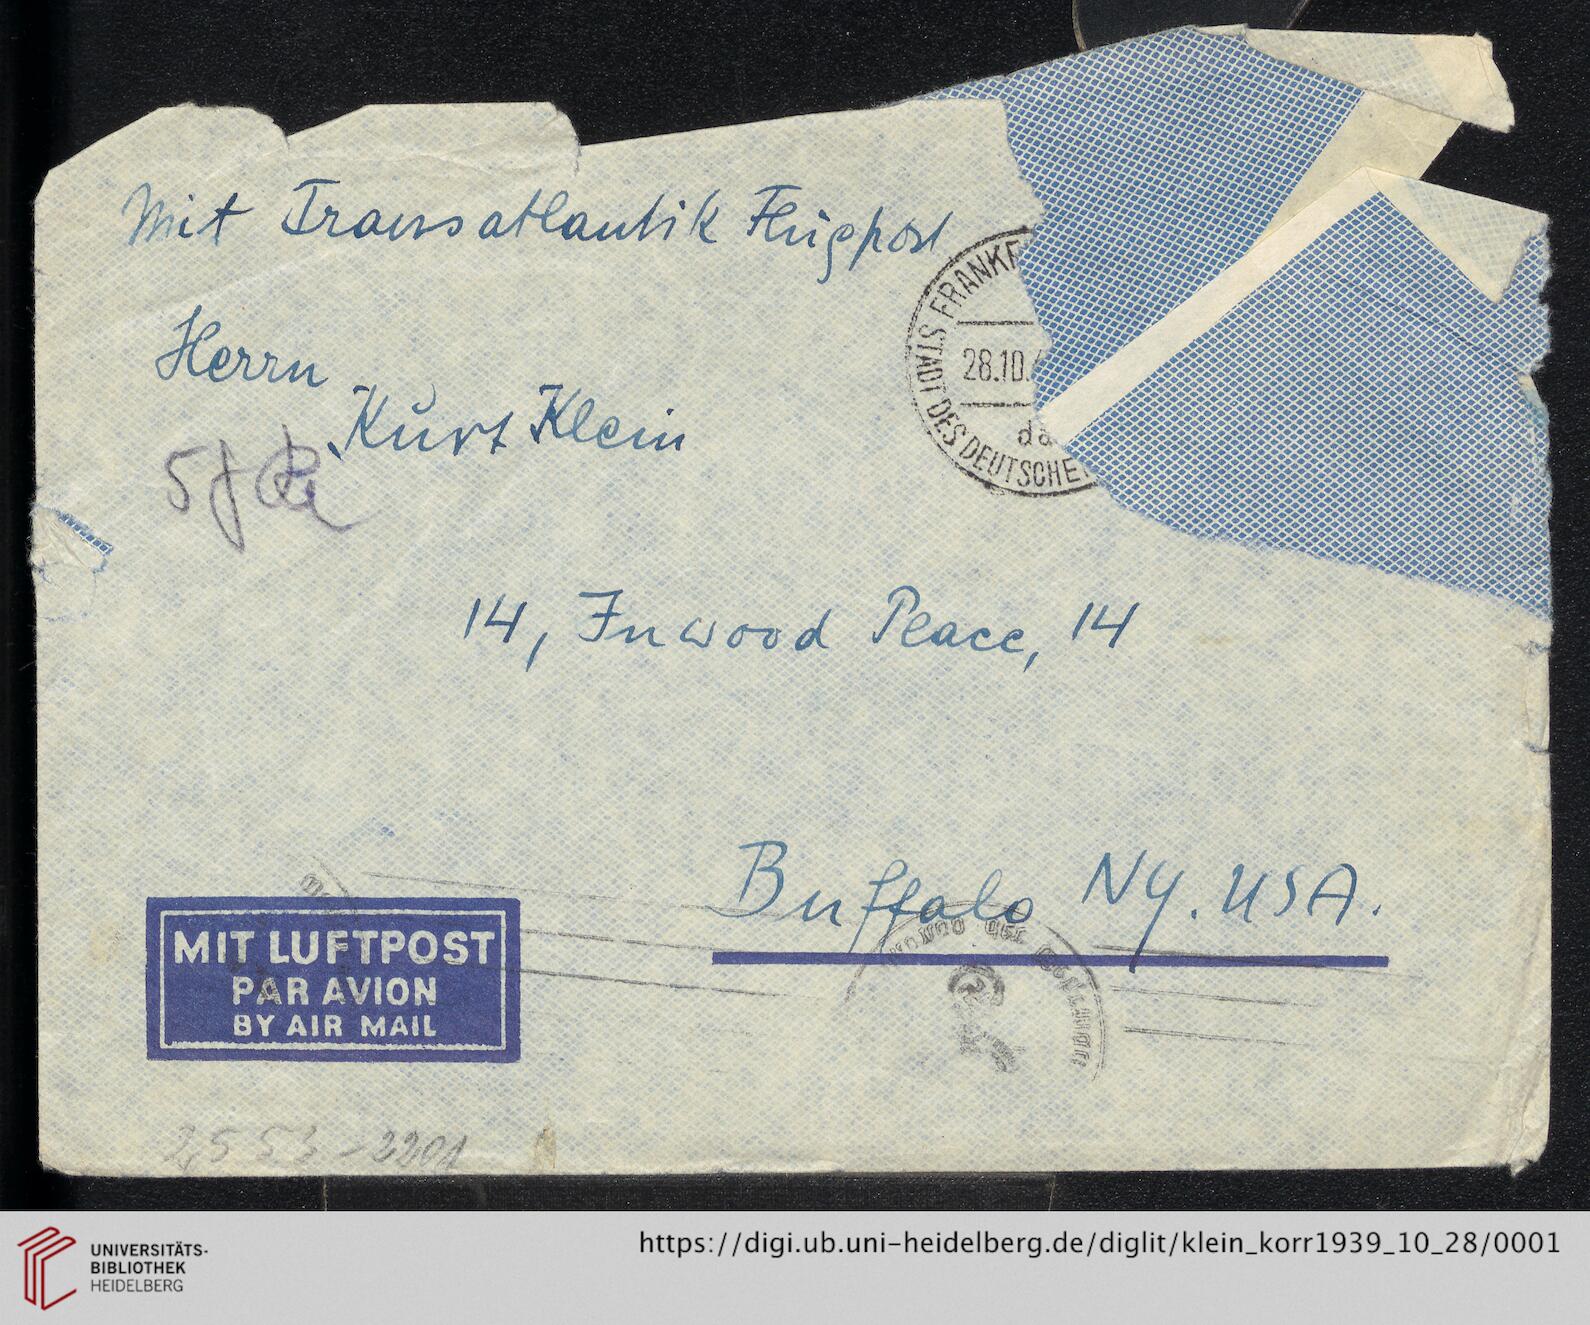 Mit Transatlantik Flugpost
STADT DES DEUTSCHE
28.10.
Herrn
Kurt Klein
14, Inwood Place, 14
Buffalo NY. USA.
MIT LUFTPOST
PAR AVION
BY AIR MAIL
UNIVERSITÄTS-
BIBLIOTHEK
HEIDELBERG
https://digi.ub.uni-heidelberg.de/diglit/klein_korr1939_10_28/0001